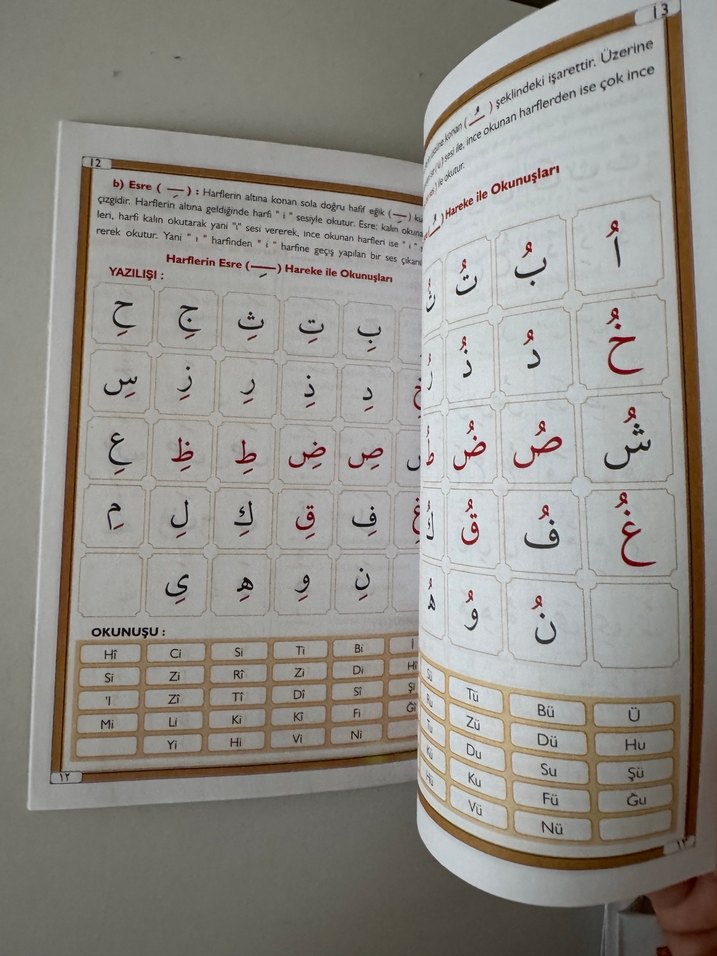 12
b) Esre ( ــِـ ) : Harflerin altına konan sola doğru hafif eğik (ــِـ)
çizgidir. Harflerin altına geldiğinde harfi " i " sesiyle okutur. Esre; kalın
leri, harfi kalın okutarak yani "ı" sesi vererek, ince okunan harfleri ise " i "
rerek okutur. Yani " ı " harfinden " i " harfine geçiş yapılan bir ses
Harflerin Esre (ــِـ) Hareke ile Okunuşları
YAZILIŞI :
بِ تِ ثِ جِ حِ
دِ ذِ رِ زِ سِ
صِ ضِ طِ ظِ عِ
غِ فِ قِ كِ لِ مِ
نِ وِ هِ ىِ
OKUNUŞU :
Hî Ci Si Ti Bi İ
Si Zi Rî Zi Di Hî
'I Zî Tî Dî Sî Şi
Mi Li Ki Kî Fi Ğî
Yi Hi Vi Ni
١٢
13
konan ( ــُـ ) şeklindeki işarettir. Üzerine
sesi ile, ince okunan harflerden ise çok ince
ile okutur.
Hareke ile Okunuşları
اُ بُ تُ ثُ
خُ دُ ذُ رُ
شُ صُ ضُ طُ
غُ فُ قُ كُ
نُ وُ هُ
Sü Tü Bü Ü
Ru Zü Dü Hu
Tu Du Su Şü
Kü Ku Fü Ğu
Hü Vü Nü
١٣